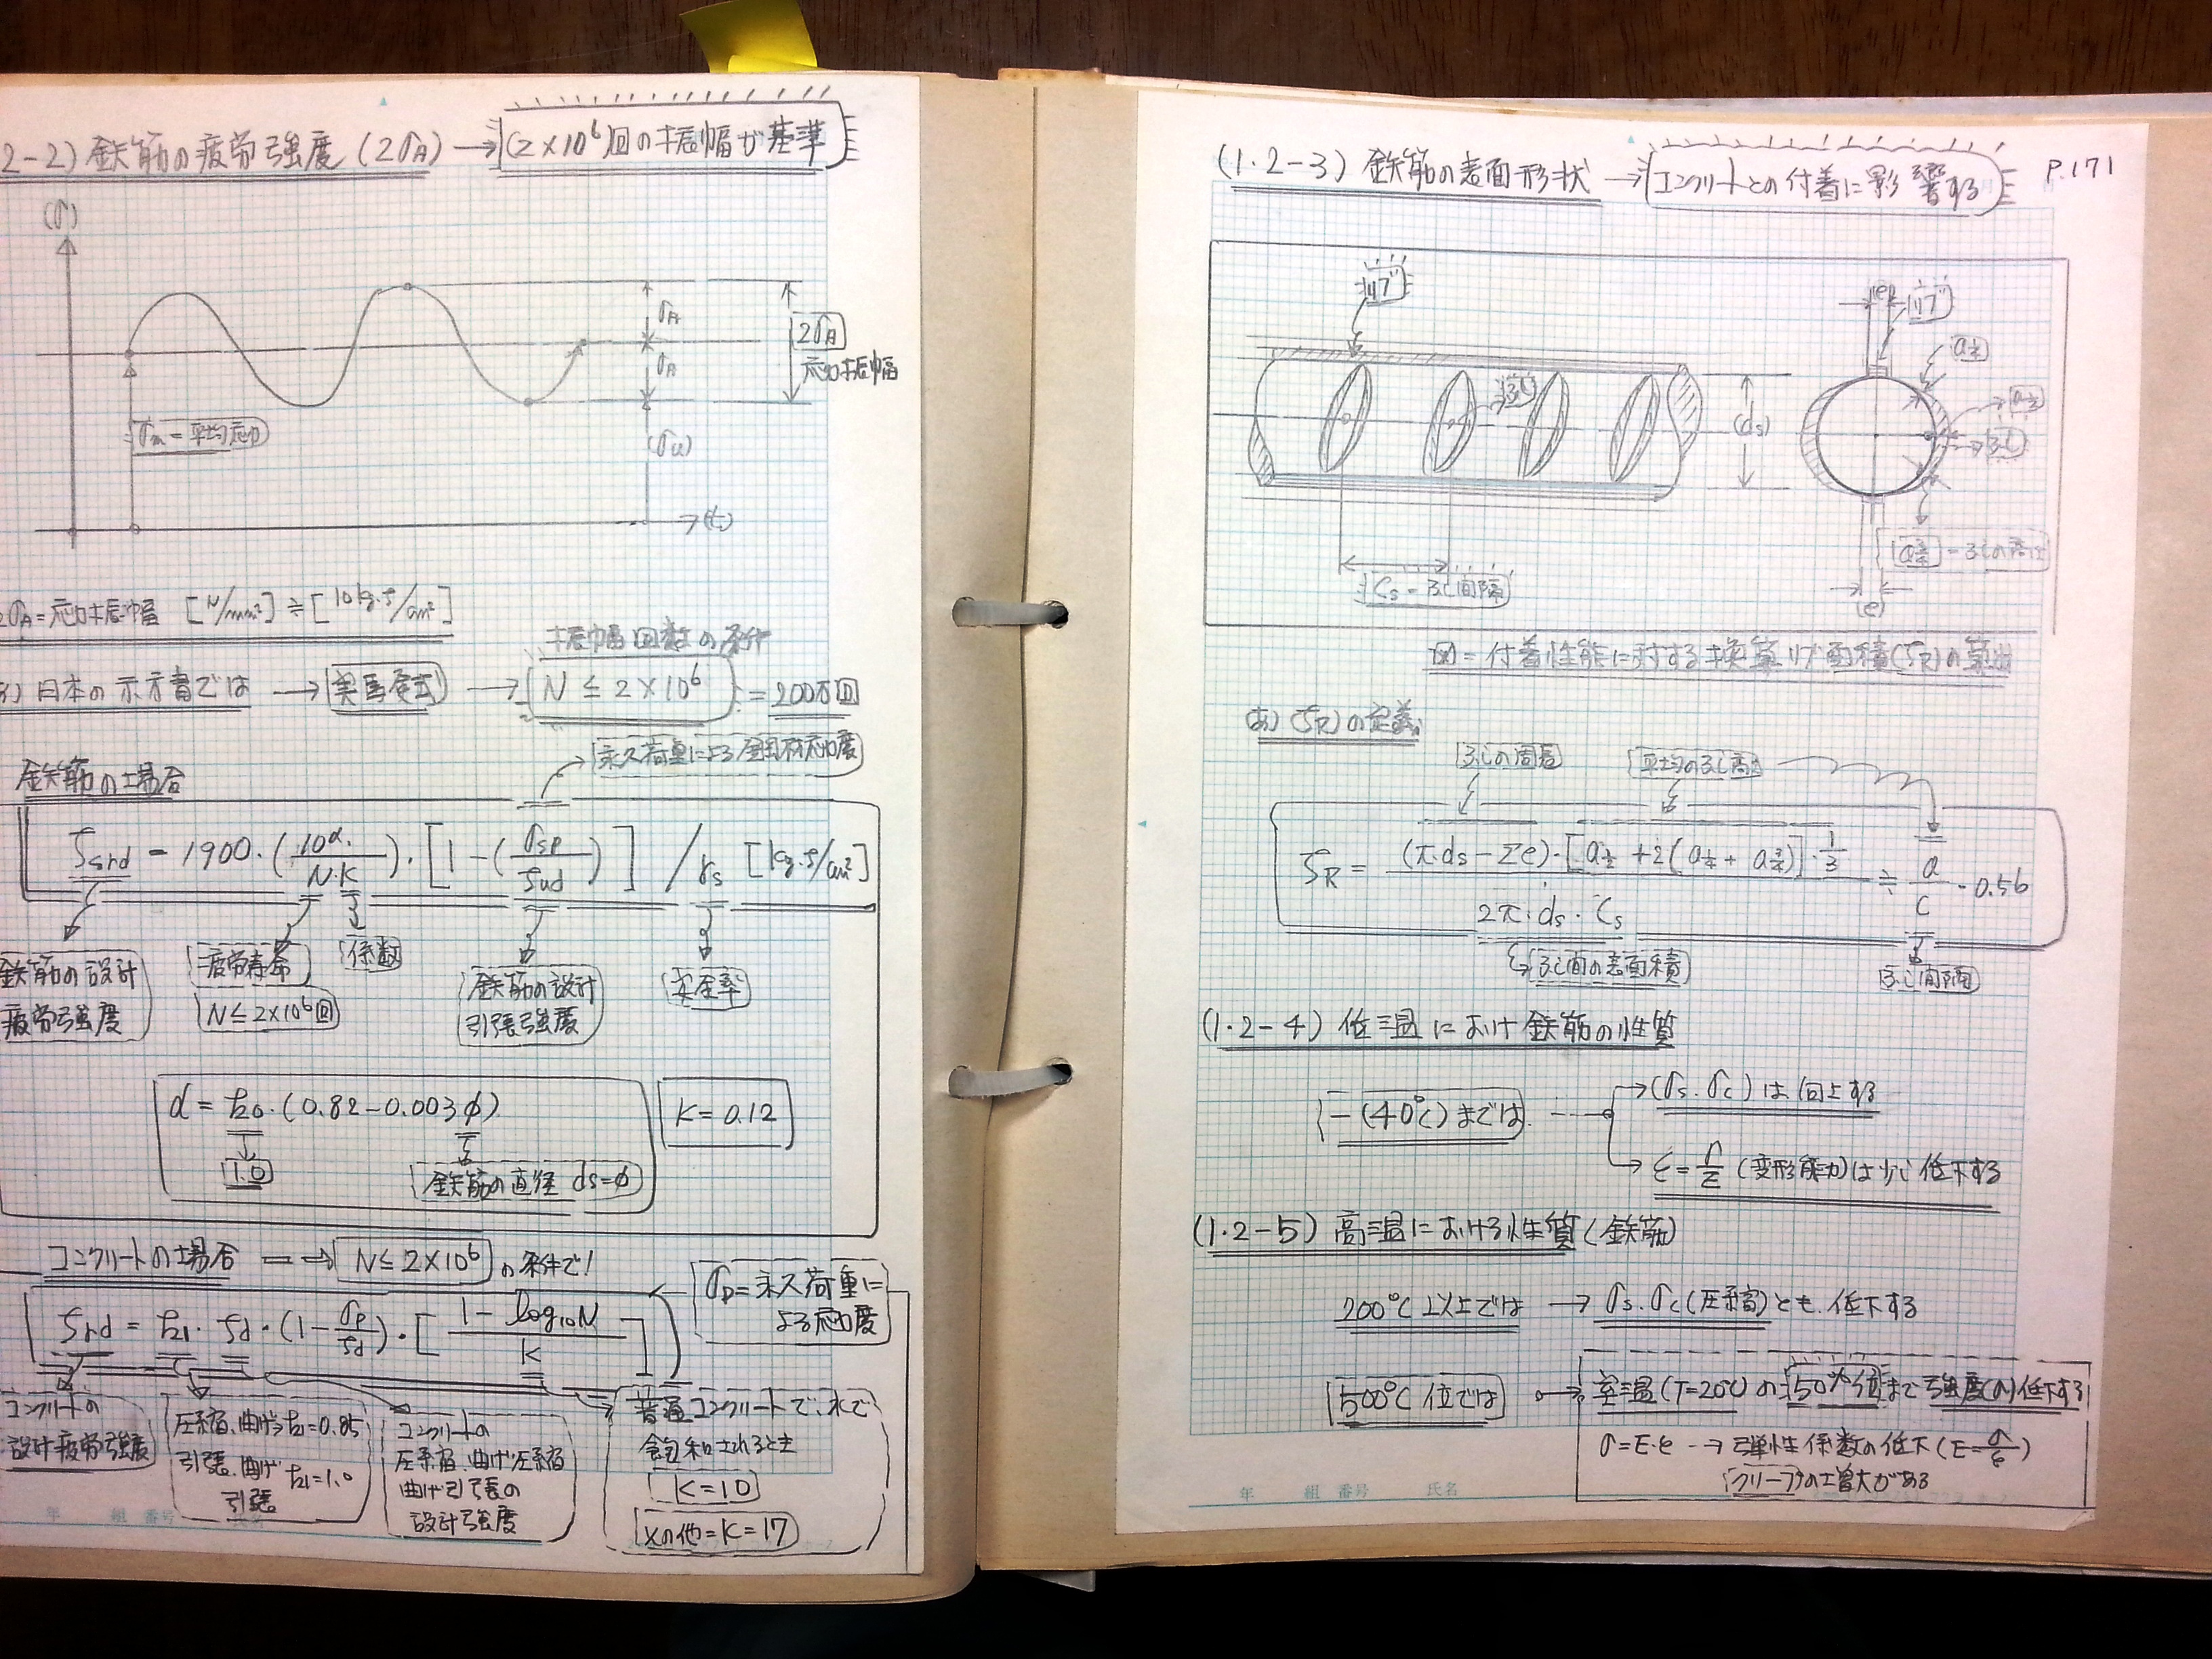 2-2) 鉄筋の疲労強度 (2σA) → (2×10⁶)回の振幅が基準
(σ)
σA
2σA
応力振幅
σA
σm = 平均応力
(σu)
(t)
2σA = 応力振幅 [N/mm²] ≒ [10kg·f/cm²]
振幅回数の条件
日本の示方書では → 実馬度式 → N ≤ 2×10⁶ = 200万回
永久荷重による鋼材応力度
鉄筋の場合
fsrd = 1900·(10^α/N·K)·[1-(σsp/fud)]/rs [kg·f/cm²]
鉄筋の設計
疲労強度
疲労寿命
N≤2×10⁶回
係数
鉄筋の設計
引張強度
安全率
α = k₀·(0.82-0.003φ)
K = 0.12
1.0
鉄筋の直径 ds=φ
コンクリートの場合 ⇒ N≤2×10⁶ の条件で!
σp=永久荷重に
よる応力度
frd = k₁·fd·(1-σp/fd)·[1-log₁₀N/K]
コンクリートの
設計疲労強度
圧縮、曲げ→k₁=0.85
引張、曲げ k₁=1.0
引張
コンクリートの
圧縮、曲げ圧縮
曲げ引張の
設計強度
普通コンクリートで、水で
飽和されるとき
K=10
その他=K=17
年 組 番号 氏名
(1·2-3) 鉄筋の表面形状 → コンクリートとの付着に影響する P.171
リブ
(e)
リブ
a¼
ふし
(ds)
a½
ふし
a¾ = ふしの高さ
Cs = ふし間隔
(e)
図= 付着性能に対する換算リブ面積(fR)の算出
(あ) (fR)の定義
ふしの周長
平均のふし高さ
fR = (π·ds-Σe)·[a½+2(a¼+a¾)]·1/3 / 2π·ds·Cs ≒ a/C · 0.56
ふし間の表面積
ふし間隔
(1·2-4) 低温におけ鉄筋の性質
-(40℃)までは
→(σs.σc)は向上する
→ε=σ/E (変形能力)は少し低下する
(1·2-5) 高温における性質(鉄筋)
200℃以上では → σs.σc(圧縮)とも.低下する
500℃位では → 室温(T=20℃)の50%位まで強度(σ)低下する
σ=E·ε → 弾性係数の低下(E=σ/ε)
クリープの増大がある
年 組 番号 氏名